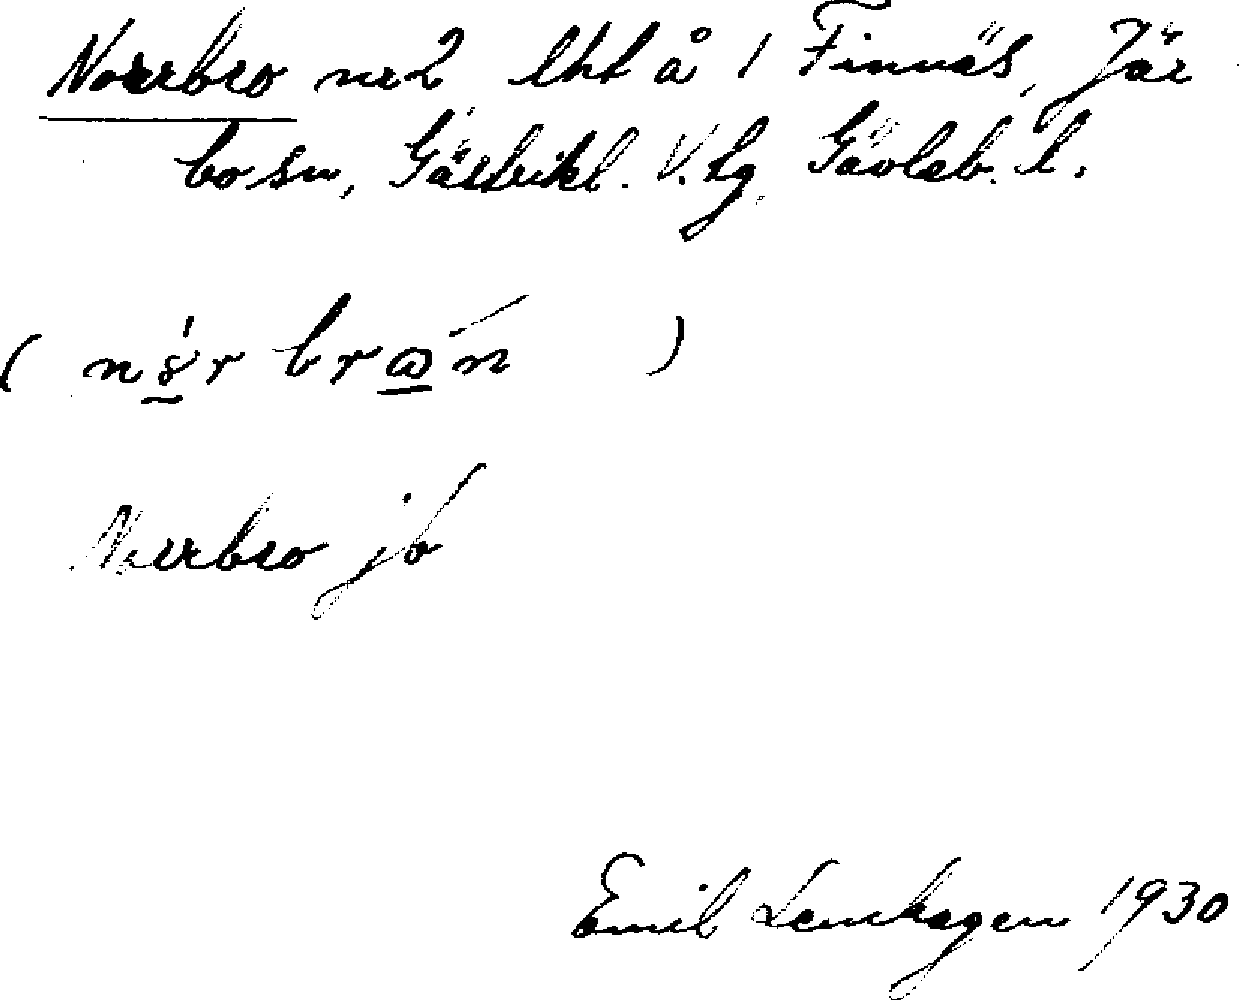 Norrbro nr 2 lht å 1 Finnäs, Jär
bo sn, Gästrikl. V. tg. Gävleb. l.
Norrbro jb
Emil Lenhagen 1930